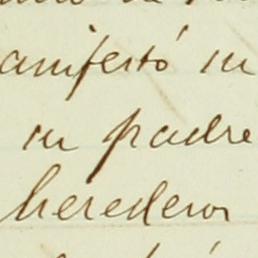 anifestó su
su padre
herederos